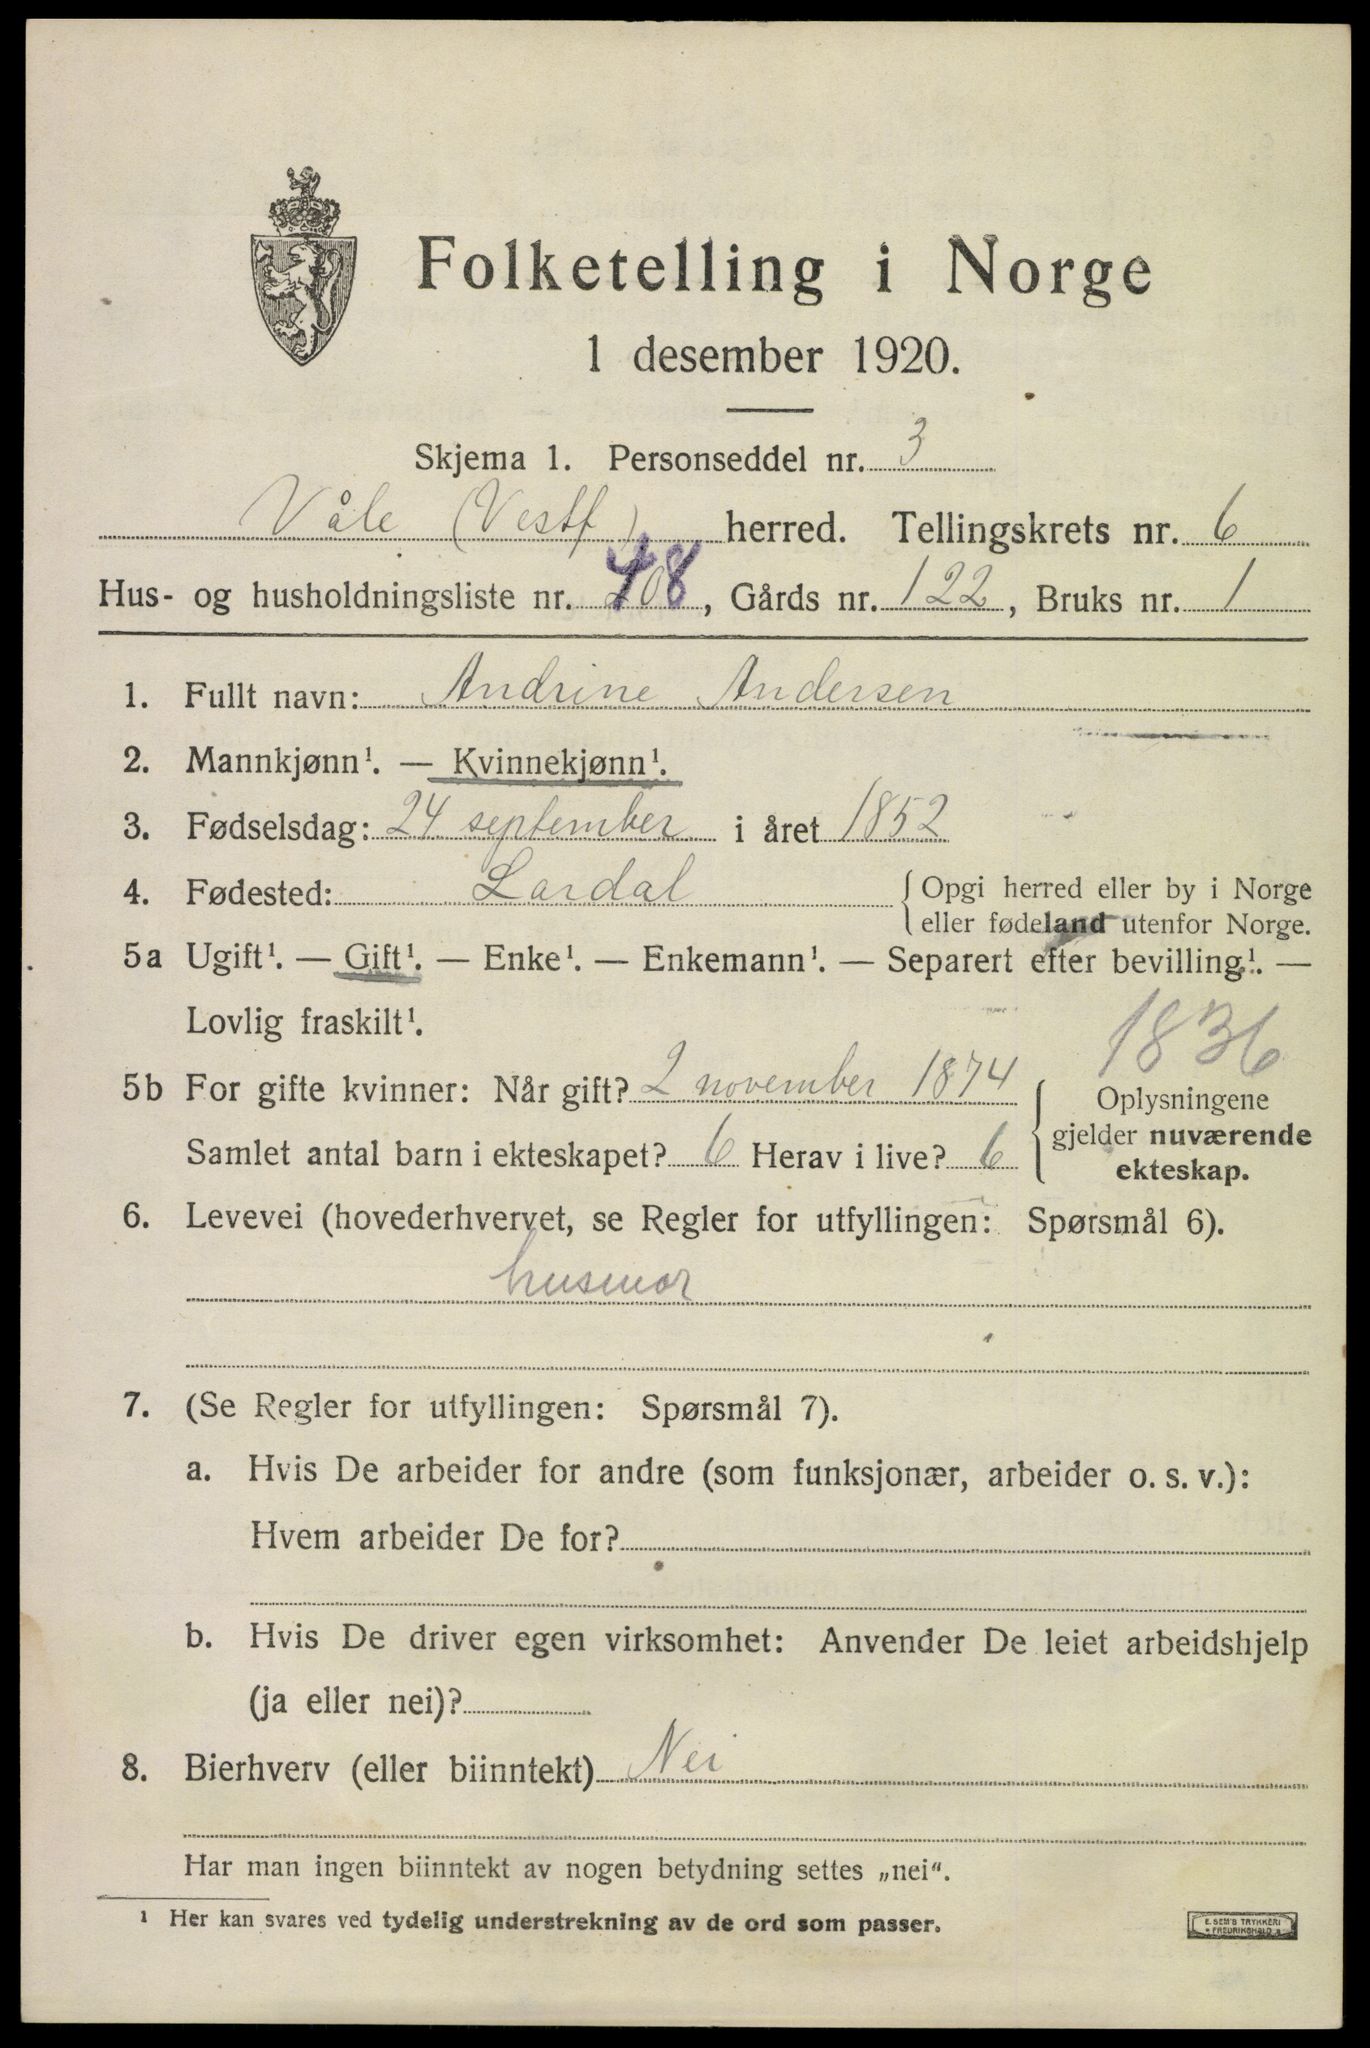 Folketelling i Norge
1 desember 1920.
Skjema 1. Personseddel nr. 3
Våle (Vestf) herred. Tellingskrets nr. 6
Hus- og husholdningsliste nr. 408, Gårds nr. 122, Bruks nr. 1
1. Fullt navn: Andrine Andersen
2. Mannkjønn¹. — Kvinnekjønn¹.
3. Fødselsdag: 24 september i året 1852
4. Fødested: Lardal
Opgi herred eller by i Norge
eller fødeland utenfor Norge.
5a Ugift¹. — Gift¹. — Enke¹. — Enkemann¹. — Separert efter bevilling¹. —
Lovlig fraskilt¹.
1836
5b For gifte kvinner: Når gift? 2 november 1874
Samlet antal barn i ekteskapet? 6 Herav i live? 6
Oplysningene
gjelder nuværende
ekteskap.
6. Levevei (hovederhvervet, se Regler for utfyllingen: Spørsmål 6).
husmor
7. (Se Regler for utfyllingen: Spørsmål 7).
a. Hvis De arbeider for andre (som funksjonær, arbeider o. s. v.):
Hvem arbeider De for?
b. Hvis De driver egen virksomhet: Anvender De leiet arbeidshjelp
(ja eller nei)?
8. Bierhverv (eller biinntekt) Nei
Har man ingen biinntekt av nogen betydning settes „nei“.
¹ Her kan svares ved tydelig understrekning av de ord som passer.
E. SEM'S TRYKKERI
FREDRIKSHALD